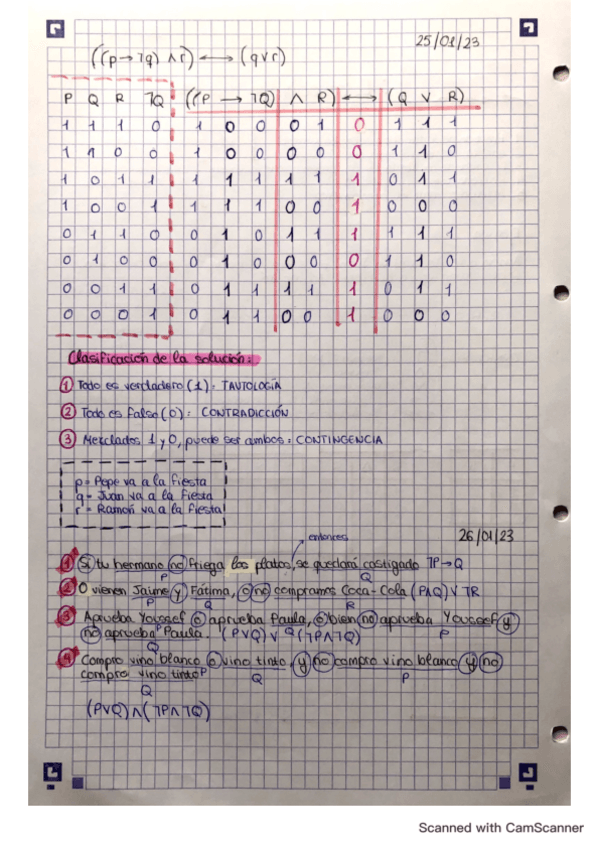 25/01/23
((p→¬q) ∧ r) ⟷ (q∨r)
P Q R ¬Q ((P → ¬Q) ∧ R) ⟷ (Q ∨ R)
1 1 1 0 1 0 0 0 1 0 1 1 1
1 1 0 0 1 0 0 0 0 0 1 1 0
1 0 1 1 1 1 1 1 1 1 0 1 1
1 0 0 1 1 1 1 0 0 1 0 0 0
0 1 1 0 0 1 0 1 1 1 1 1 1
0 1 0 0 0 1 0 0 0 0 1 1 0
0 0 1 1 0 1 1 1 1 1 0 1 1
0 0 0 1 0 1 1 0 0 1 0 0 0
Clasificación de la solución:
1 Todo es verdadero (1): TAUTOLOGÍA
2 Todo es falso (0): CONTRADICCIÓN
3 Mezclados 1 y 0, puede ser ambos: CONTINGENCIA
p= Pepe va a la fiesta
q= Juan va a la fiesta
r= Ramón va a la fiesta
26/01/23
entonces
1 Si tu hermano no friega los platos, se quedará castigado ¬P→Q
P Q
2 O vienen Jaime y Fátima, o no compramos Coca-Cola (P∧Q) ∨ ¬R
P Q R
3 Aprueba Youssef o aprueba Paula, o bien no aprueba Youssef y
P Q P
no aprueba Paula. (P∨Q) ∨ (¬P∧¬Q)
Q
4 Compro vino blanco o vino tinto, y no compro vino blanco y no
P Q P
compro vino tinto
Q
(P∨Q)∧(¬P∧¬Q)
Scanned with CamScanner